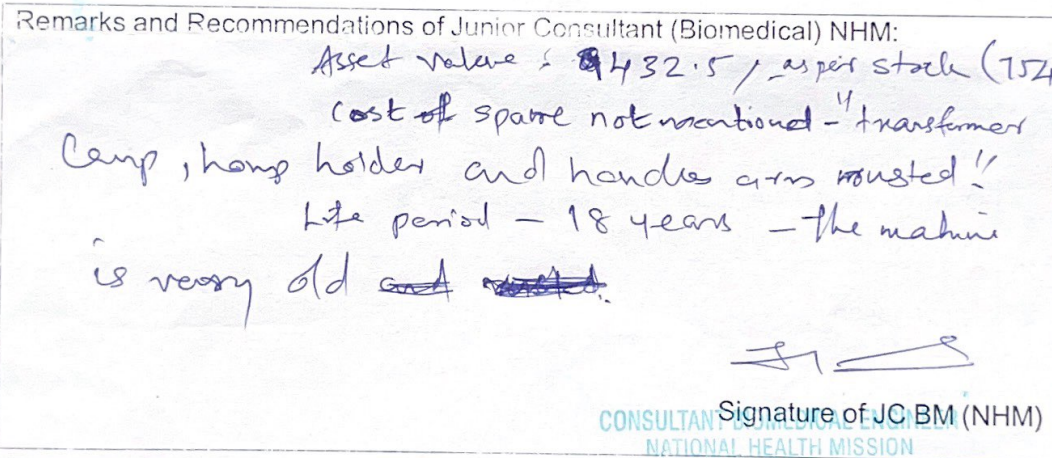 Remarks and Recommendations of Junior Consultant (Biomedical) NHM:
Asset value : 9432.5/- as per stock (754
Cost of spare not mentioned - "transformer
Lamp, lamp holder and handles arm rousted"
Life period - 18 years - the machine
is very old and rusted.
Signature of JC BM (NHM)
CONSULTANT BIOMEDICAL ENGINEER
NATIONAL HEALTH MISSION